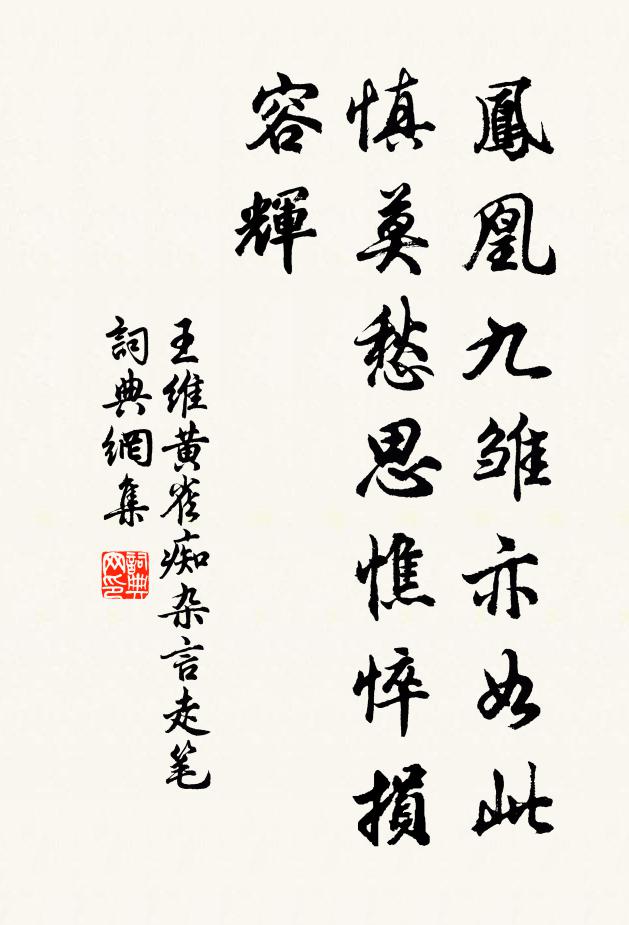 鳳凰九雏亦如此
慎莫愁思憔悴損
容輝
王維黄雀痴杂言走笔
詞典網集
詞典网印